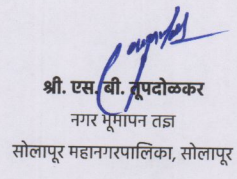 श्री. एस. बी. तूपदोळकर
नगर भूमापन तज्ञ
सोलापूर महानगरपालिका, सोलापूर